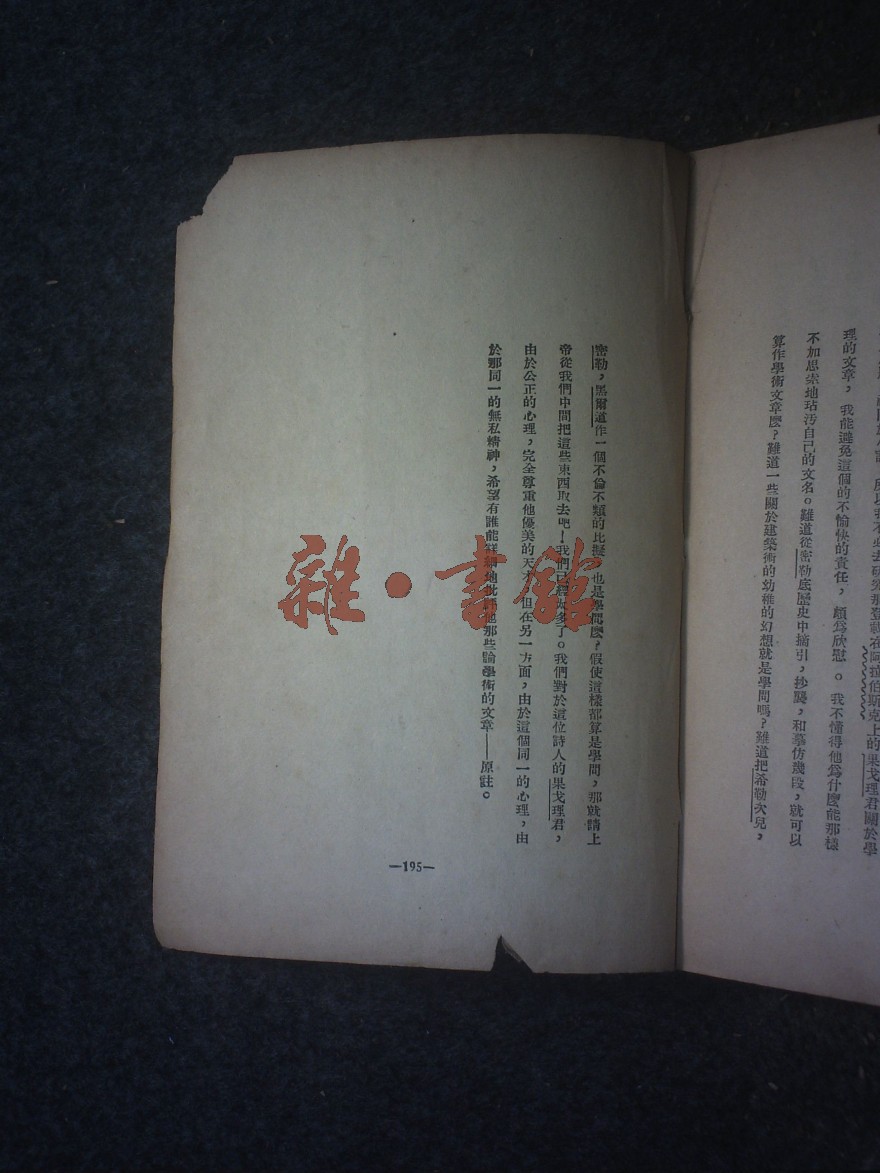 上的果戈理君關於學
理的文章，我能避免這個的不愉快的責任，頗為欣慰。我不懂得他為什麼能那樣
不加思索地玷污自己的文名。難道從密勒底歷史中摘引，抄襲，和摹仿幾段，就可以
算作學術文章麼？難道一些關於建築術的幼稚的幻想就是學問嗎？難道把希勒次兒，
密勒，黑爾道作一個不倫不類的比擬，也是學問麼？假使這樣都算是學問，那就請上
帝從我們中間把這些東西取去吧！我們已經 多了。我們對於這位詩人的果戈理君，
由於公正的心理，完全尊重他優美的天才，但在另一方面，由於這個同一的心理，由
於那同一的無私精神，希望有誰能詳細地批評他那些論學術的文章——原註。
—195—
雜·書館